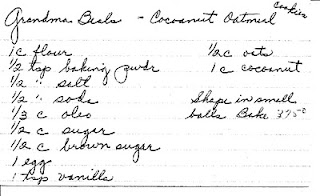 Grandma Beals - Cocoanut Oatmeal Cookies
1 c flour
1/2 tsp baking pwdr
1/2 " salt
1/2 " soda
1/3 c oleo
1/2 c sugar
1/2 c brown sugar
1 egg
1 tsp vanilla
1/2 c oats
1 c cocoanut
Shape in small
balls Bake 375°